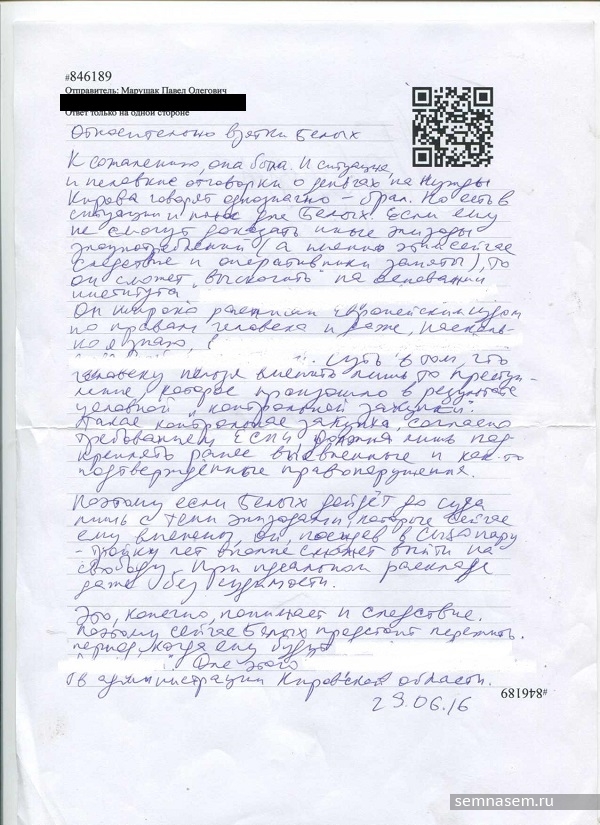 #846189
Отправитель: Марущак Павел Олегович
Ответ только на одной стороне
Относительно взятки Белых
К сожалению, она была. И ситуация,
и неловкие отговорки о деньгах на нужды
Кирова говорят однозначно – брал. Но есть в
ситуации и плюс для Белых. Если ему
не смогут доказать иные эпизоды
злоупотреблений (а именно этим сейчас
следствие и оперативники заняты), то
он сможет "выскочить" на основании
института
Он широко Европейским судом
по правам человека и даже, насколь-
ко я знаю,
. Суть в том, что
человеку нельзя вменить лишь то преступ-
ление, которое произошло в результате
условной "контрольной закупки".
Такая контрольная закупка, согласно
требованиям ЕСПЧ, должна лишь под-
креплять ранее выявленные и как-то
подтверждённые правонарушения.
Поэтому если Белых дойдёт до суда
лишь с теми эпизодами, которые сейчас
ему вменены, он, посидев в СИЗО пару
- тройку лет вполне сможет выйти на
свободу. При идеальном раскладе
даже без судимости.
Это, конечно, понимает и следствие.
Поэтому сейчас Белых предстоит пережить
период, когда ему будут
Для этого
в администрации Кировской области.
29.06.16
#846189
semnasem.ru